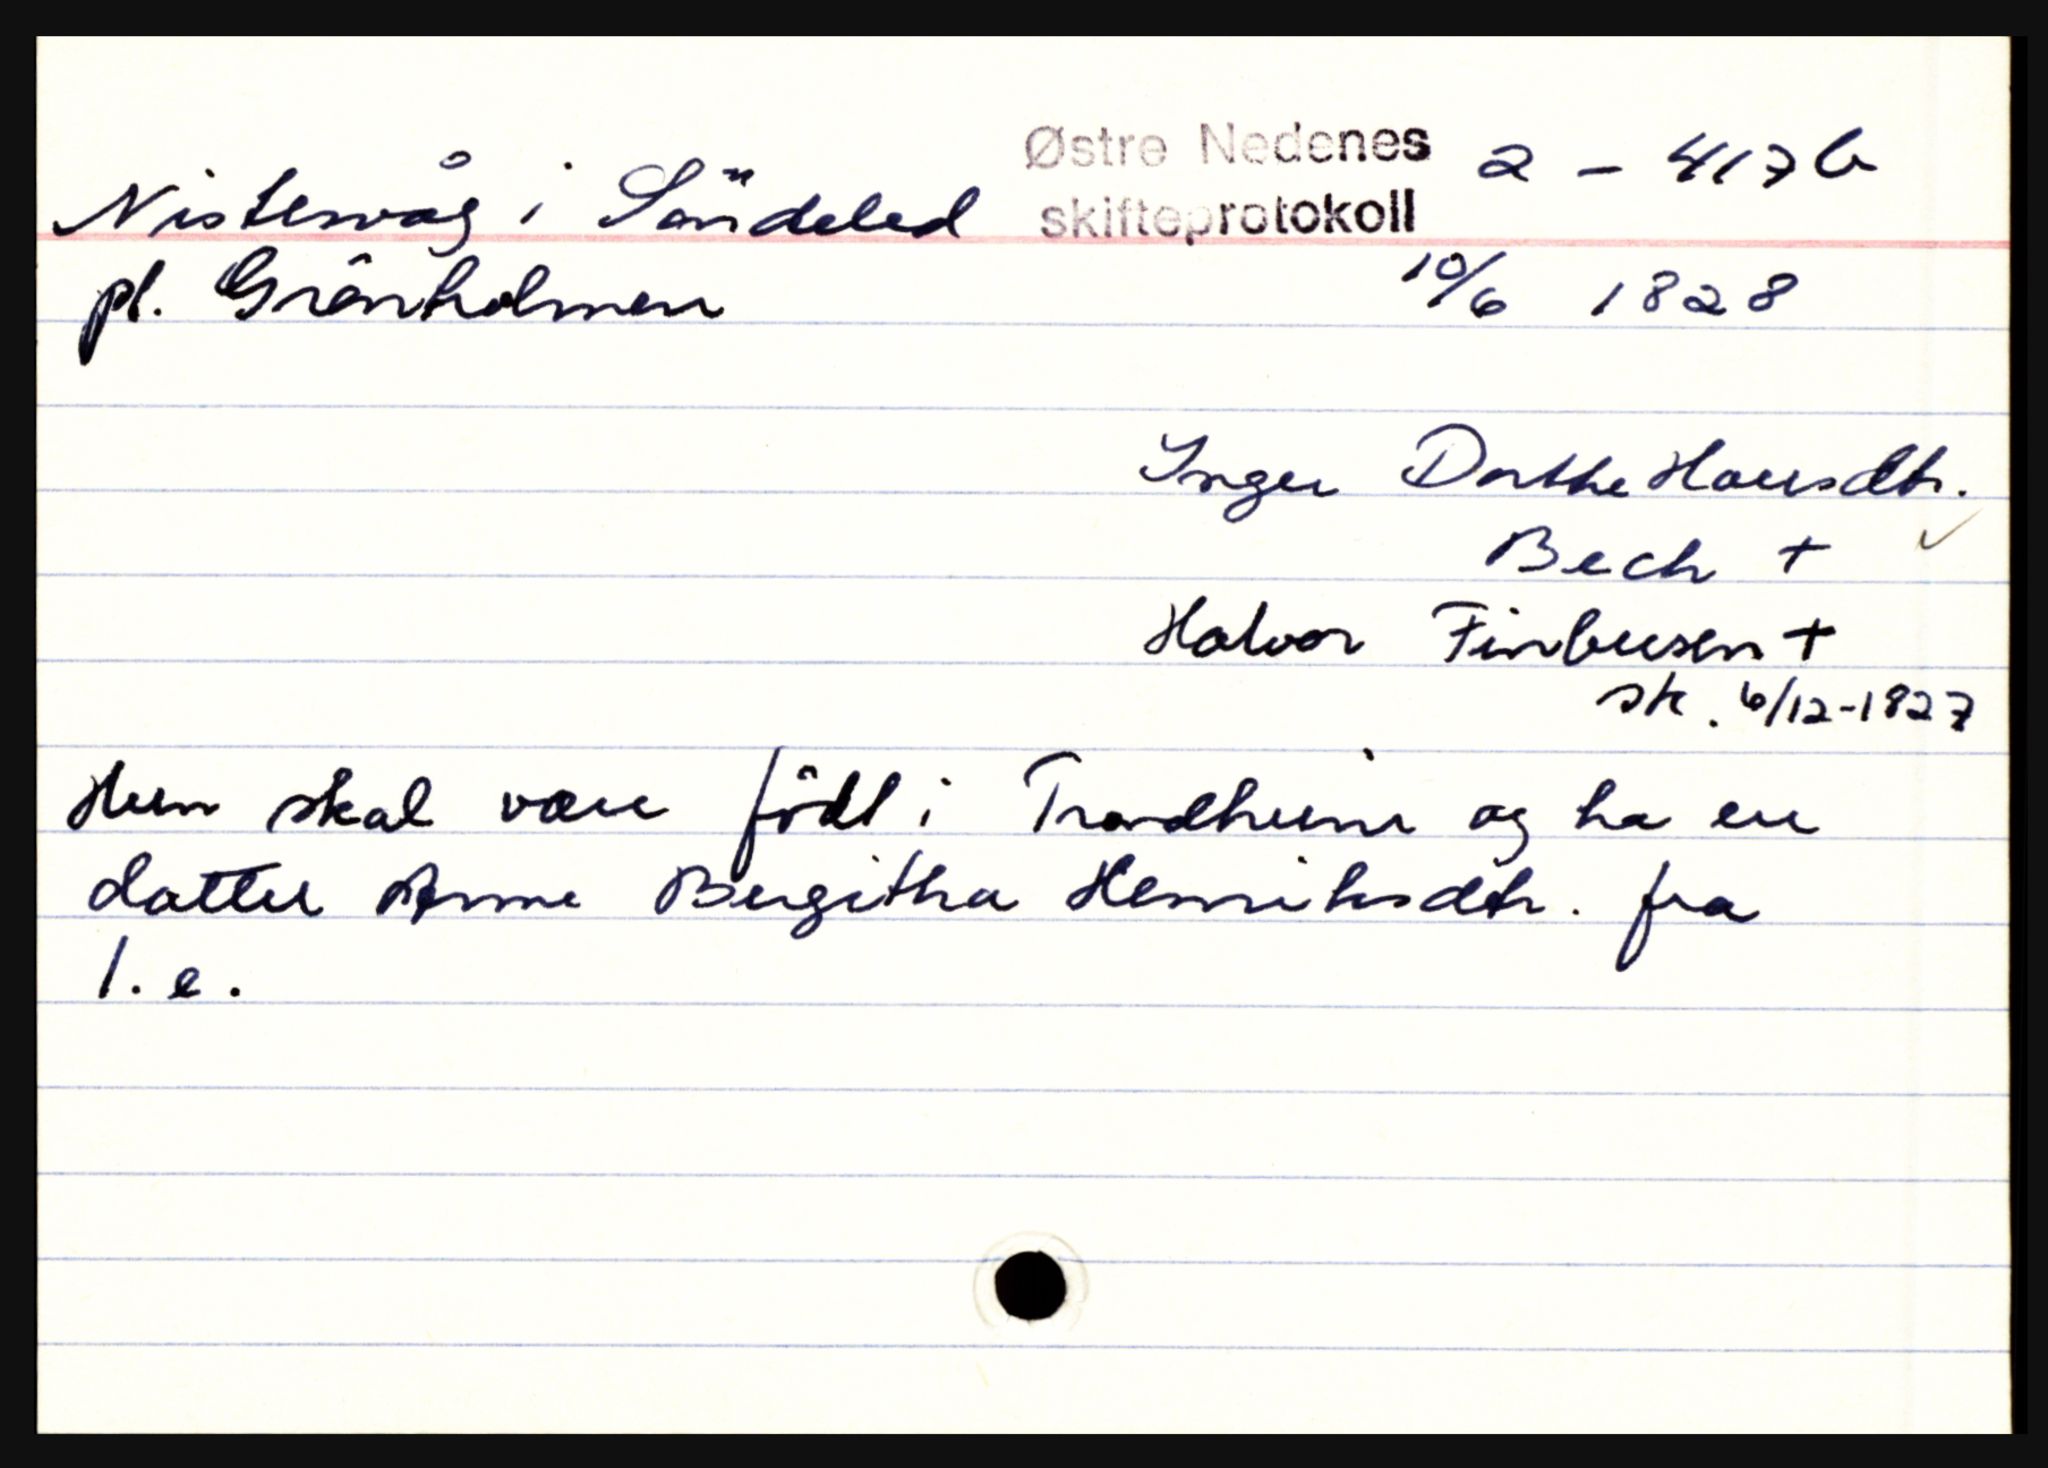 Østre Nedenes 2 - 417b
Nistesvåg i Söndeled skifteprotokoll
pl. Grönholmen 10/6 1828
Inger Dorthe Hansdtr.
Bech +
Halvor Finbusen +
sk. 6/12-1827
Hun skal være född i Trondheim og ha en
datter Anne Bergitha Henriksdtr. fra
1. e.